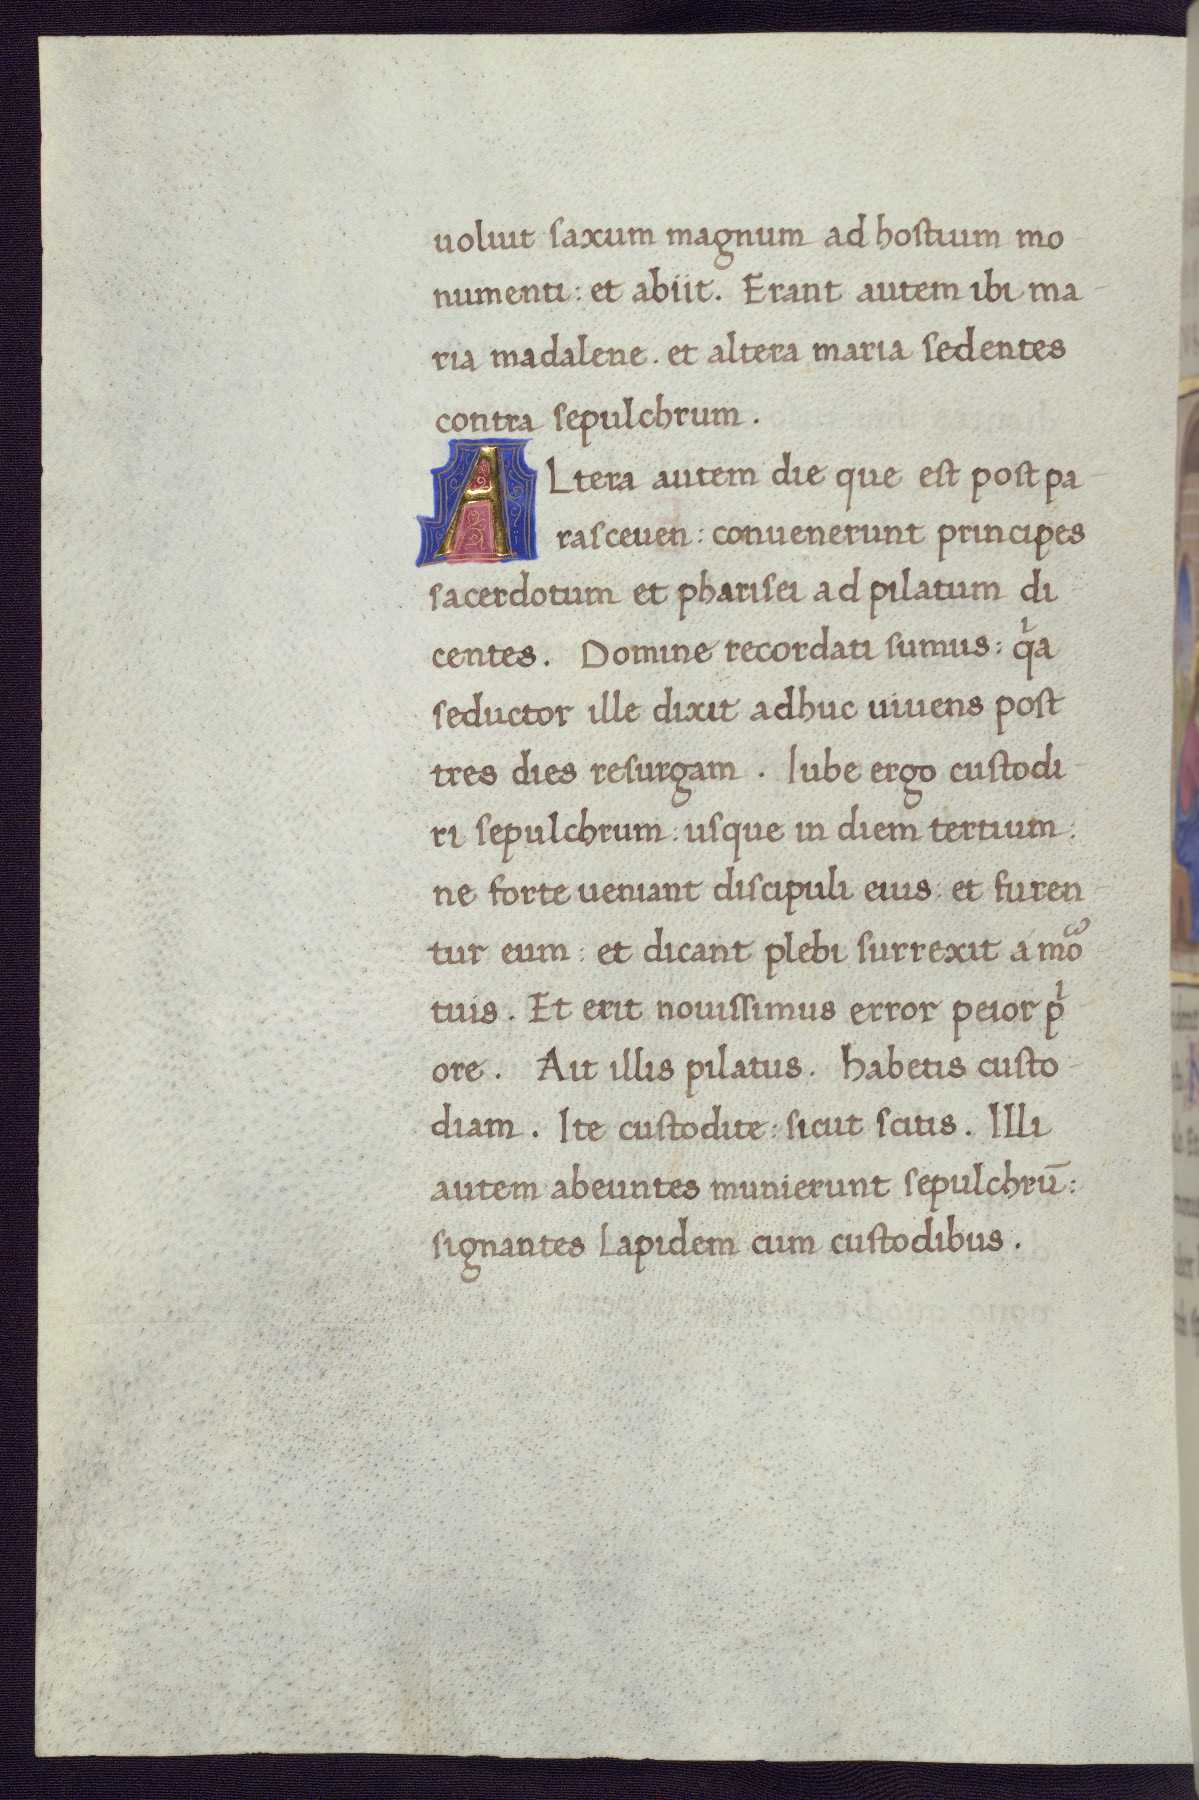 uoluit saxum magnum ad hostium mo-
numenti: et abiit. Erant autem ibi ma-
ria madalene. et altera maria sedentes
contra sepulchrum.
ALtera autem die que est post pa-
rasceuen: conuenerunt principes
sacerdotum et pharisei ad pilatum di
centes. Domine recordati sumus: qͥa
seductor ille dixit adhuc uiuens post
tres dies resurgam. Iube ergo custodi-
ri sepulchrum: usque in diem tertium:
ne forte ueniant discipuli eius: et furen-
tur eum: et dicant plebi surrexit a mo
tuis. Et erit nouissimus error peior pͥ
ore. Ait illis pilatus. Habetis custo-
diam. Ite custodite: sicut scitis. Illi
autem abeuntes munierunt sepulchrū:
signantes lapidem cum custodibus.